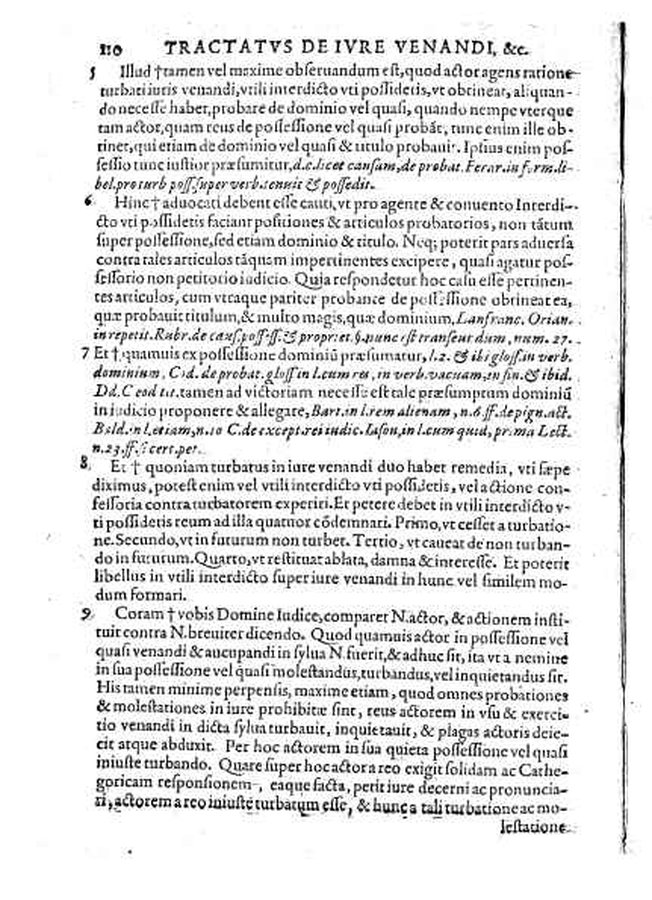 110 TRACTATVS DE IVRE VENANDI, &c.
5 Illud †tamen vel maxime obseruandum est,quod actor agens ratione
turbati iuris venandi,vtili interdicto vti possidetis,vt obtineat, aliquan-
do necesse haber,probare de dominio vel quasi, quando nempe vterque
tam actor,quam reus de possessione vel quasi probãt, tunc enim ille ob-
tinet,qui etiam de dominio vel quasi & titulo probauit. Ipsius enim pos-
sessio tunc iustior præsumitur,d.c.licet causam,de probat.Ferar.in form.li-
bel.pro turb poss.super verb.tenuit & possedit.
6 Hinc † aduocati debent esse cauti, vt pro agente & conuento Interdi-
cto vti possidetis faciant positiones & articulos probatorios, non tãtum
super possessione,sed etiam dominio & titulo. Neq; poterit pars aduersa
contra tales articulos tãquam impertinentes excipere, quasi agatur pos-
sessorio non petitorio iudicio. Quia respondetur hoc casu esse pertinen-
tes articulos, cum vtraque pariter probante de possessione obtineat ea,
quæ probauit titulum,& multo magis,quæ dominium,Lanfranc. Orian.
in repetit.Rubr.de caus.poss.ss.& propriet.§.nunc est transeundum, num. 27.
7 Et †,quamuis ex possessione dominiũ præsumatur, l.2. & ibi gloss.in verb.
dominium, Cod. de probat.gloss in l.cum res, in verb.vacuam,in fin.& ibid.
Dd.C eod tit.tamen ad victoriam necesse est tale præsumptum dominiũ
in iudicio proponere & allegare,Bart.in l.rem alienam, n.6.ff.de pign.act.
Bald.in l.etiam,n.10 C.de except.rei iudic.Iason,in l.cum quid, prima Lect.
n.23.ff.si cert.pet.
8 Et † quoniam turbatus in iure venandi duo habet remedia, vti sæpe
diximus, potest enim vel vtili interdicto vti possidetis, vel actione con-
fessoria contra turbatorem experiri.Et petere debet in vtili interdicto v-
ti possidetis reum ad illa quatuor cõdemnari. Primo,vt cesset a turbatio-
ne.Secundo,vt in futurum non turbet. Tertio, vt caueat de non turban-
do in futurum.Quarto,vt restituat ablata, damna & interesse. Et poterit
libellus in vtili interdicto super iure venandi in hunc vel similem mo-
dum formari.
9 Coram † vobis Domine Iudice,comparet N.actor, & actionem insti-
tuit contra N.breuiter dicendo. Quod quamuis actor in possessione vel
quasi venandi & aucupandi in sylua N.fuerit,& adhuc sit, ita vt a nemine
in sua possessione vel quasi molestandus,turbandus,vel inquietandus sit.
His tamen minime perpensis, maxime etiam, quod omnes probationes
& molestationes in iure prohibitæ sint, reus actorem in vsu & exerci-
tio venandi in dicta sylua turbauit, inquietauit, & plagas actoris deie-
cit atque abduxit. Per hoc actorem in sua quieta possessione vel quasi
iniuste turbando. Quare super hoc actor a reo exigit solidam ac Cathe-
goricam responsionem, eaque facta, petit iure decerni ac pronuncia-
ri, actorem a reo iniuste turbatum esse, & hunc a tali turbatione ac mo-
lestatione